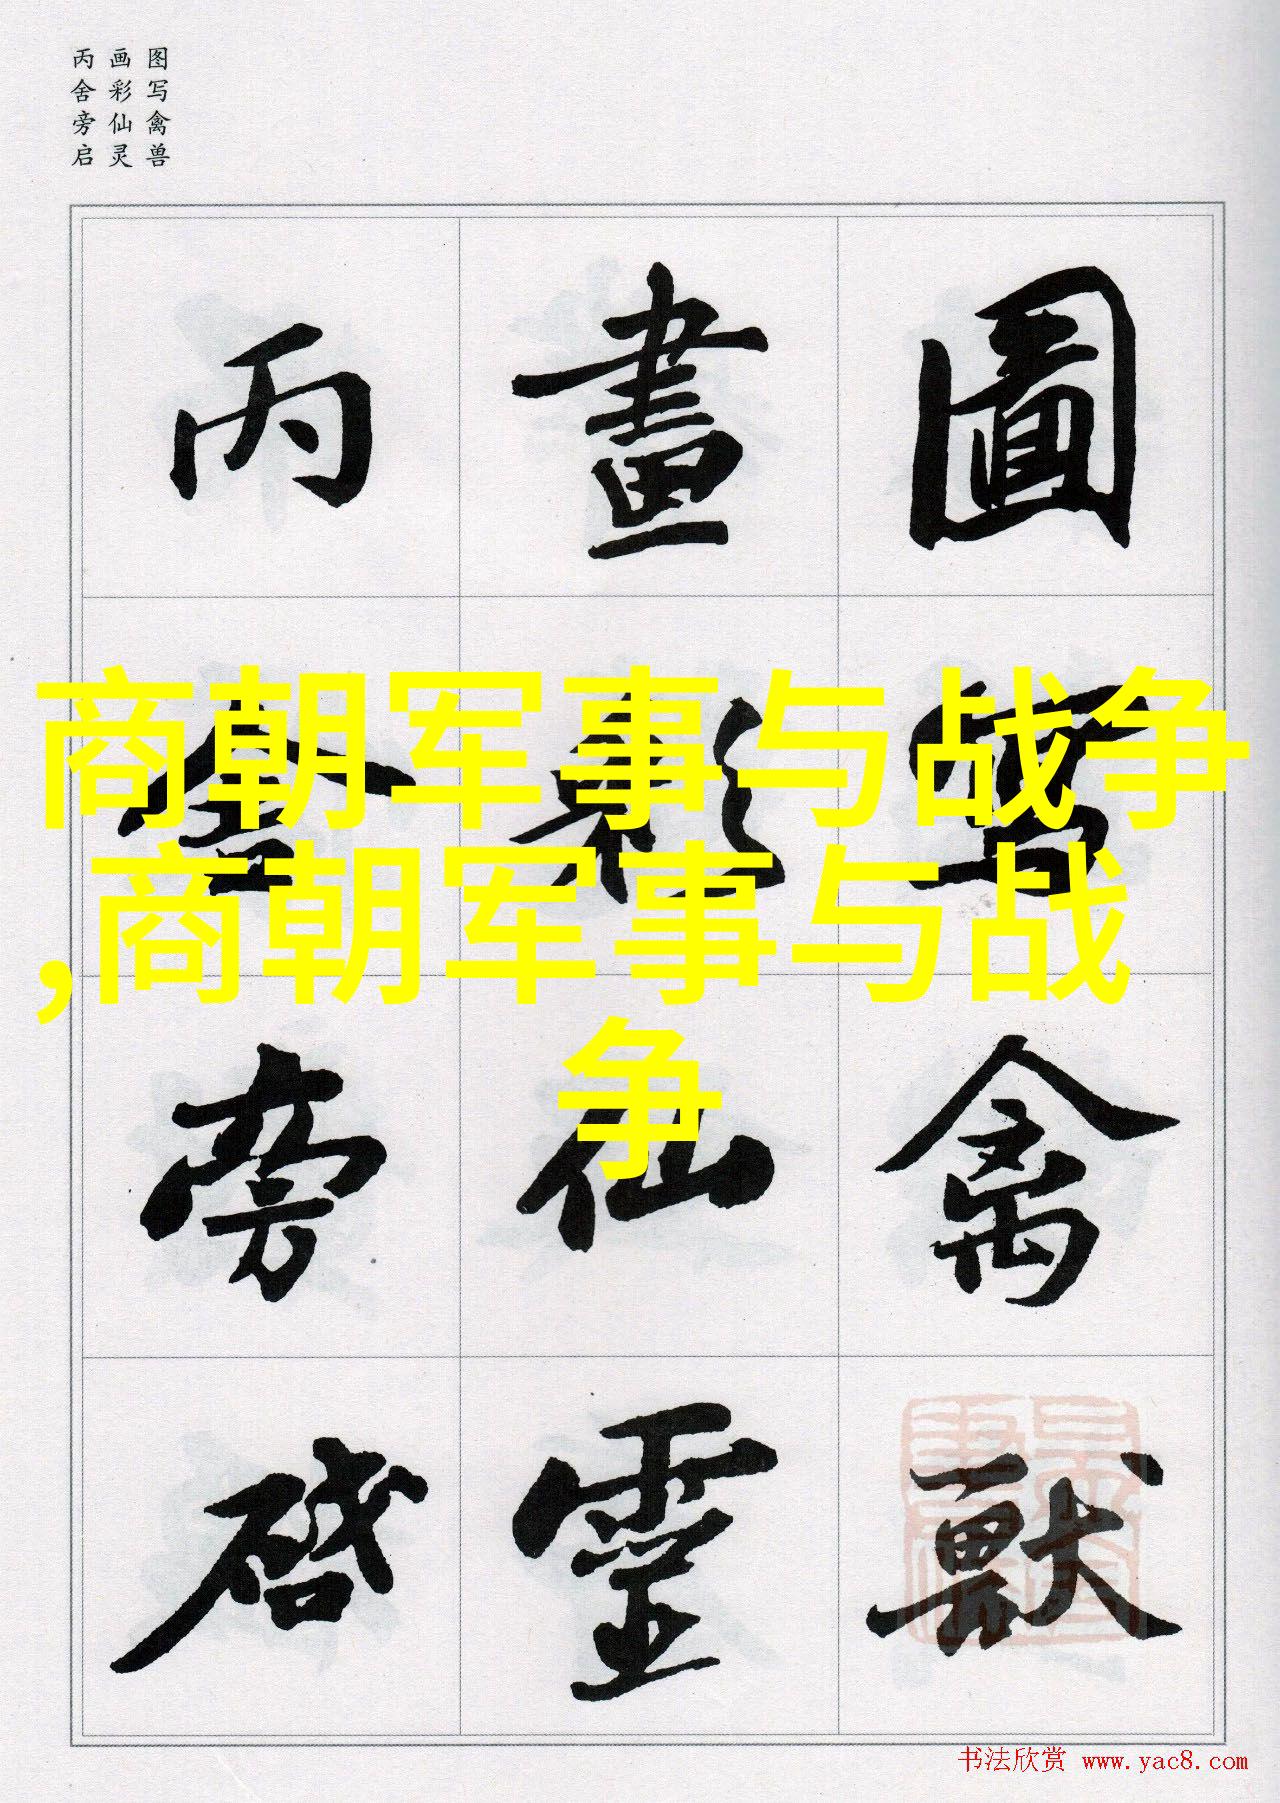 图写禽兽
画彩仙灵
丙舍旁启
圖寫禽獸
畫彩仙靈
丙舍旁啓
商朝军事与战争
,商朝军事与战
争
书法欣赏 www.yac8.com